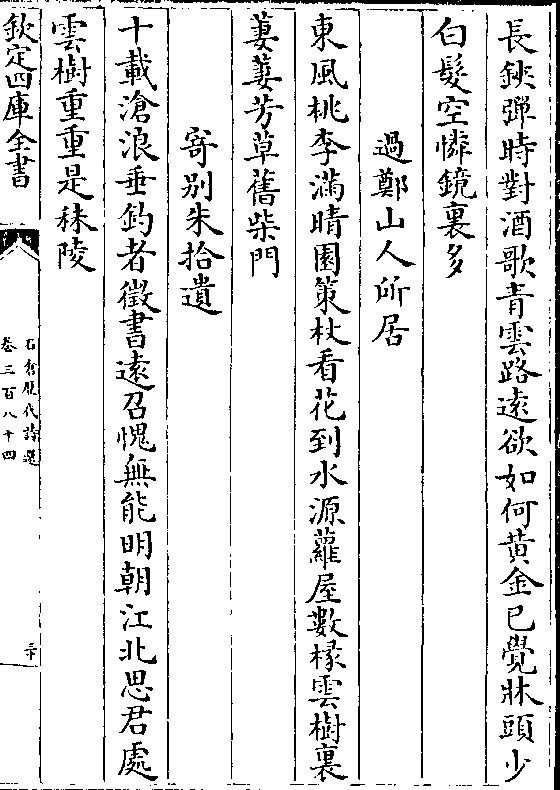 長鋏彈時對酒歌青雲路遠欲如何黄金已覺牀頭少
白髮空憐鏡裏多
過鄭山人所居
東風桃李滿晴園策杖看花到水源蘿屋數椽雲樹裏
萋萋芳草舊柴門
寄别朱拾遺
十載滄浪垂釣者徵書逺召愧無能明朝江北思君處
雲樹重重是秣陵
欽定四庫全書
石倉歷代詩選
卷三百八十四
三十